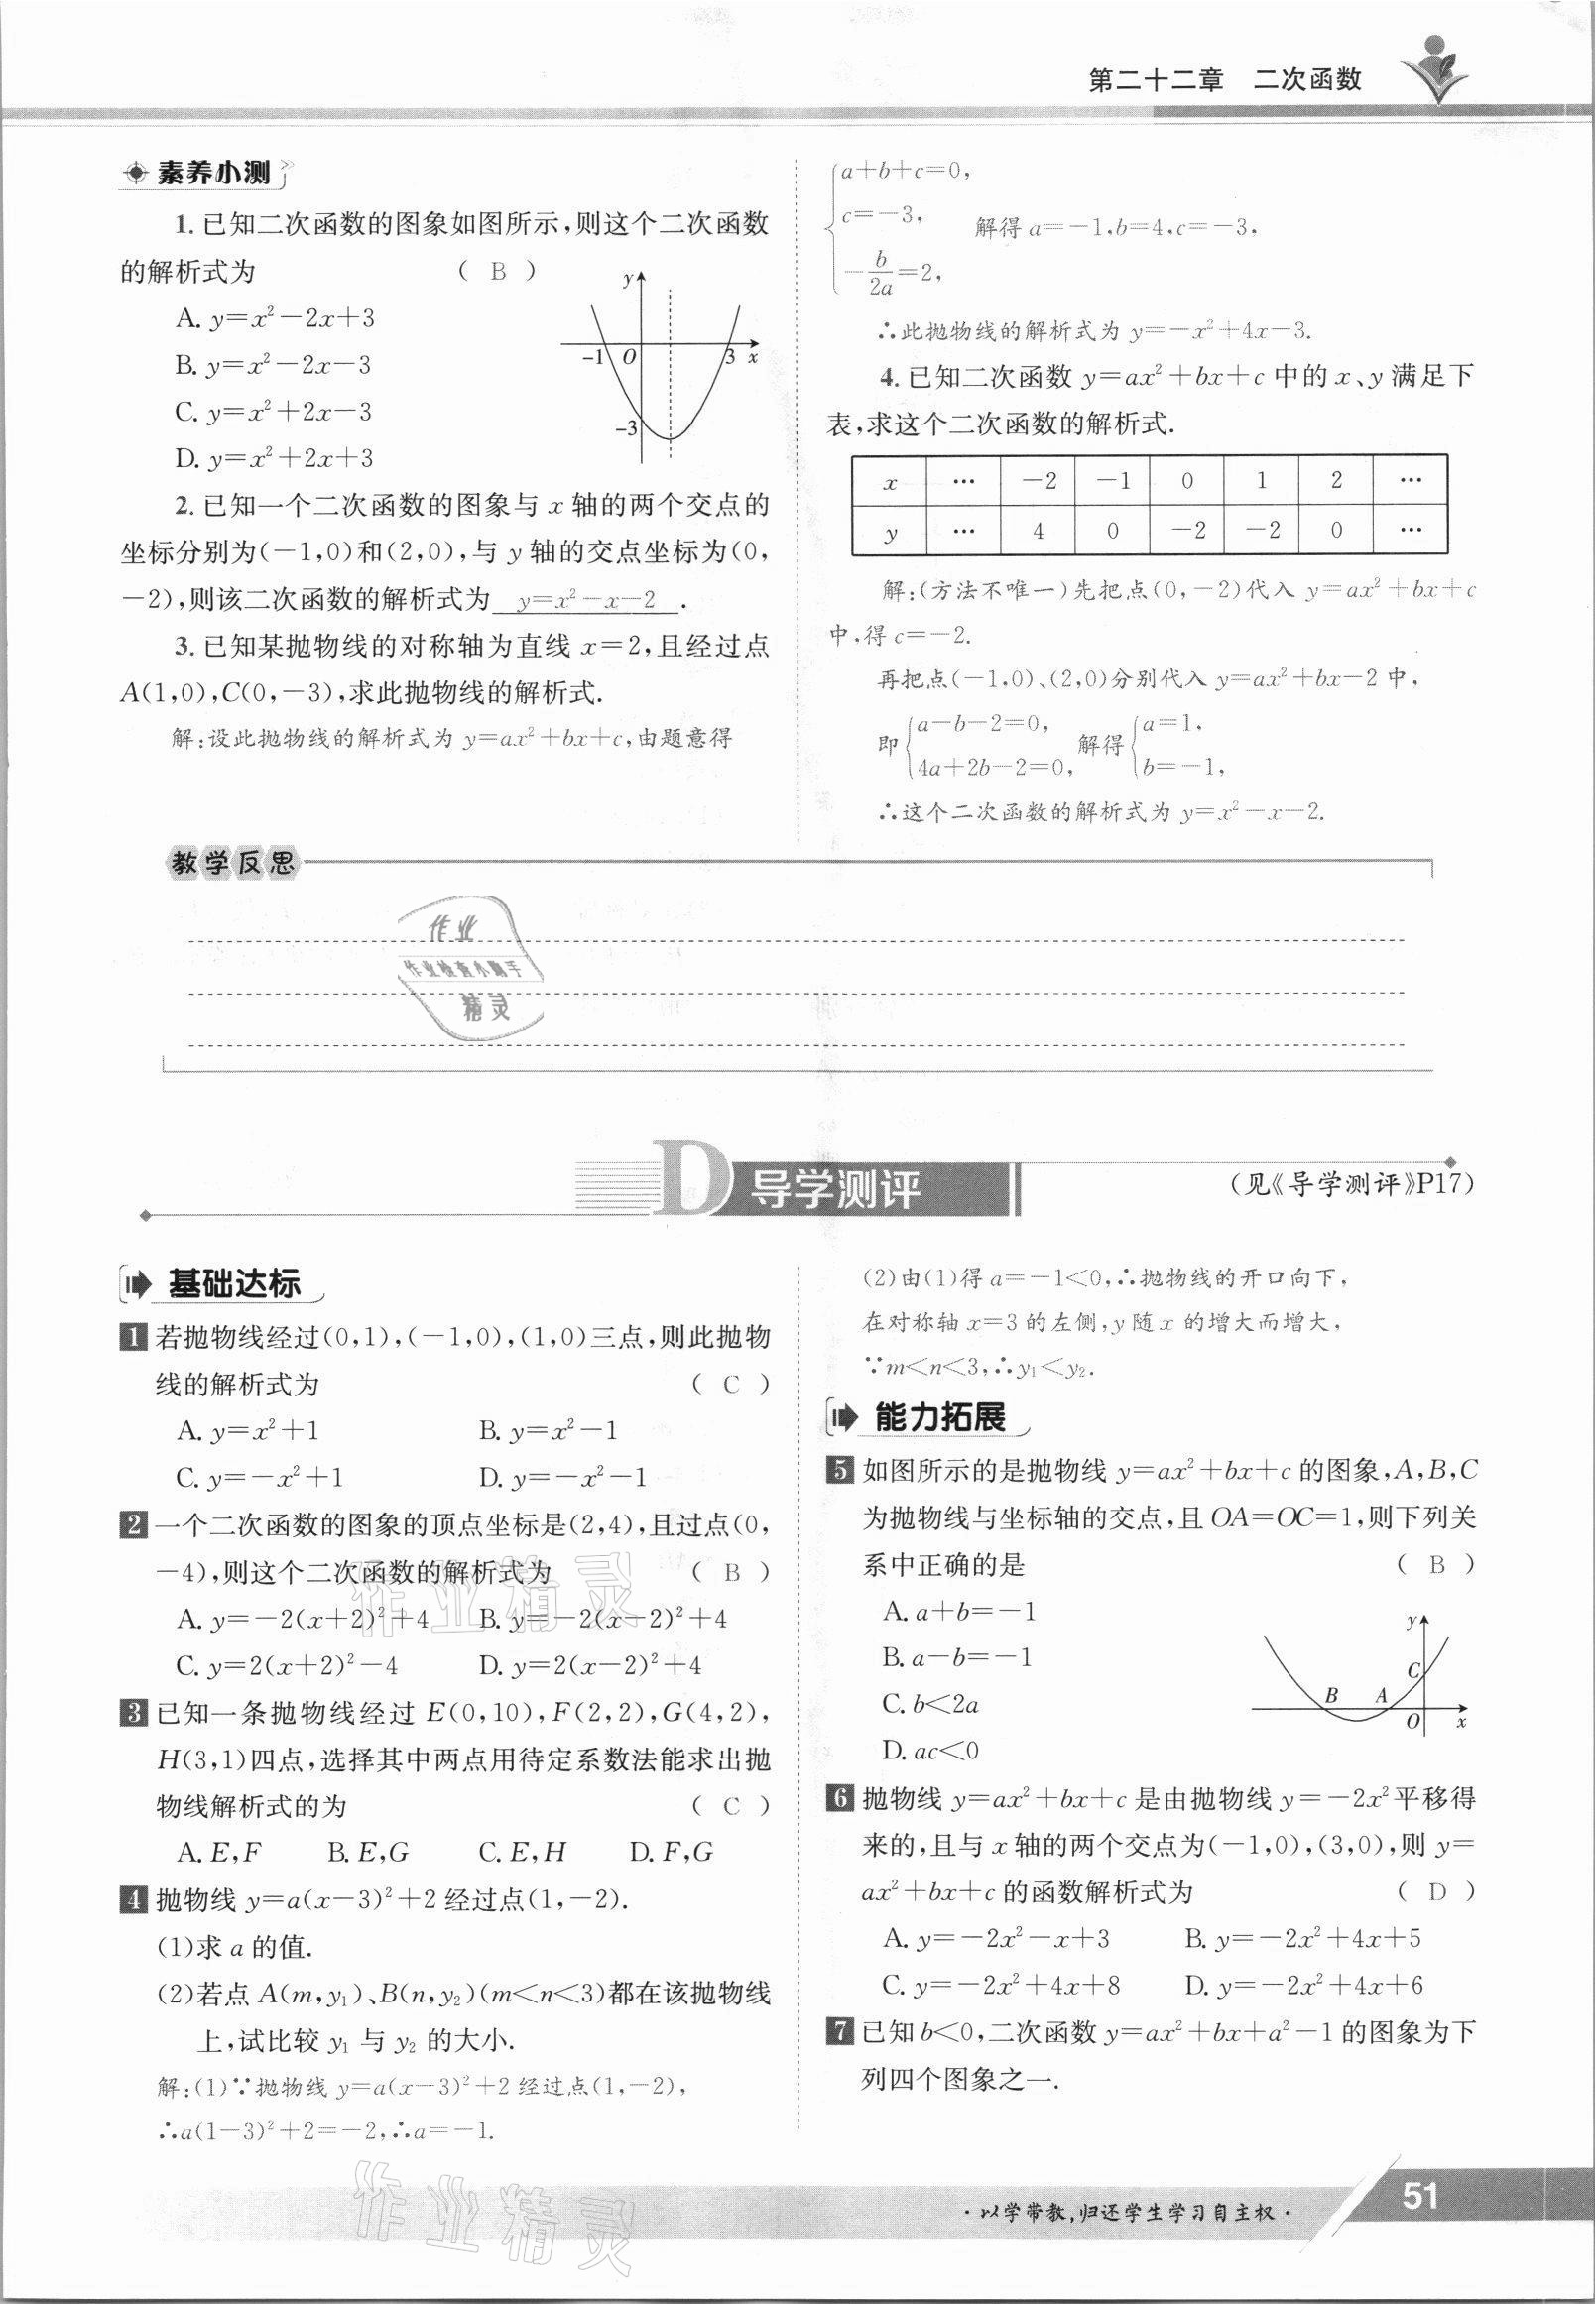 第二十二章　二次函数
素养小测
1.已知二次函数的图象如图所示,则这个二次函数
的解析式为 ( B )
A. y=x²-2x+3
B. y=x²-2x-3
C. y=x²+2x-3
D. y=x²+2x+3
y
-1 O 3 x
-3
2.已知一个二次函数的图象与 x 轴的两个交点的
坐标分别为(-1,0)和(2,0),与 y 轴的交点坐标为(0,
-2),则该二次函数的解析式为 y=x²-x-2 .
3.已知某抛物线的对称轴为直线 x=2,且经过点
A(1,0),C(0,-3),求此抛物线的解析式.
解:设此抛物线的解析式为 y=ax²+bx+c,由题意得
a+b+c=0,
c=-3, 解得 a=-1,b=4,c=-3,
-b/2a=2,
∴此抛物线的解析式为 y=-x²+4x-3.
4.已知二次函数 y=ax²+bx+c 中的 x、y 满足下
表,求这个二次函数的解析式.
x … -2 -1 0 1 2 …
y … 4 0 -2 -2 0 …
解:(方法不唯一)先把点(0,-2)代入 y=ax²+bx+c
中,得 c=-2.
再把点(-1,0)、(2,0)分别代入 y=ax²+bx-2 中,
即 { a-b-2=0, 4a+2b-2=0, 解得 { a=1, b=-1,
∴这个二次函数的解析式为 y=x²-x-2.
教学反思
作业
作业检查小助手
精灵
D 导学测评
(见《导学测评》P17)
基础达标
1 若抛物线经过(0,1),(-1,0),(1,0)三点,则此抛物
线的解析式为 ( C )
A. y=x²+1 B. y=x²-1
C. y=-x²+1 D. y=-x²-1
2 一个二次函数的图象的顶点坐标是(2,4),且过点(0,
-4),则这个二次函数的解析式为 ( B )
A. y=-2(x+2)²+4 B. y=-2(x-2)²+4
C. y=2(x+2)²-4 D. y=2(x-2)²+4
3 已知一条抛物线经过 E(0,10),F(2,2),G(4,2),
H(3,1)四点,选择其中两点用待定系数法能求出抛
物线解析式的为 ( C )
A. E,F B. E,G C. E,H D. F,G
4 抛物线 y=a(x-3)²+2 经过点(1,-2).
(1)求 a 的值.
(2)若点 A(m,y₁)、B(n,y₂)(m<n<3)都在该抛物线
上,试比较 y₁ 与 y₂ 的大小.
解:(1)∵抛物线 y=a(x-3)²+2 经过点(1,-2),
∴a(1-3)²+2=-2,∴a=-1.
(2)由(1)得 a=-1<0,∴抛物线的开口向下,
在对称轴 x=3 的左侧,y 随 x 的增大而增大,
∵m<n<3,∴y₁<y₂.
能力拓展
5 如图所示的是抛物线 y=ax²+bx+c 的图象,A,B,C
为抛物线与坐标轴的交点,且 OA=OC=1,则下列关
系中正确的是 ( B )
A. a+b=-1
B. a-b=-1
C. b<2a
D. ac<0
y
C
B A
O x
6 抛物线 y=ax²+bx+c 是由抛物线 y=-2x²平移得
来的,且与 x 轴的两个交点为(-1,0),(3,0),则 y=
ax²+bx+c 的函数解析式为 ( D )
A. y=-2x²-x+3 B. y=-2x²+4x+5
C. y=-2x²+4x+8 D. y=-2x²+4x+6
7 已知 b<0,二次函数 y=ax²+bx+a²-1 的图象为下
列四个图象之一.
作业精灵
作业精灵
·以学带教,归还学生学习自主权·
51